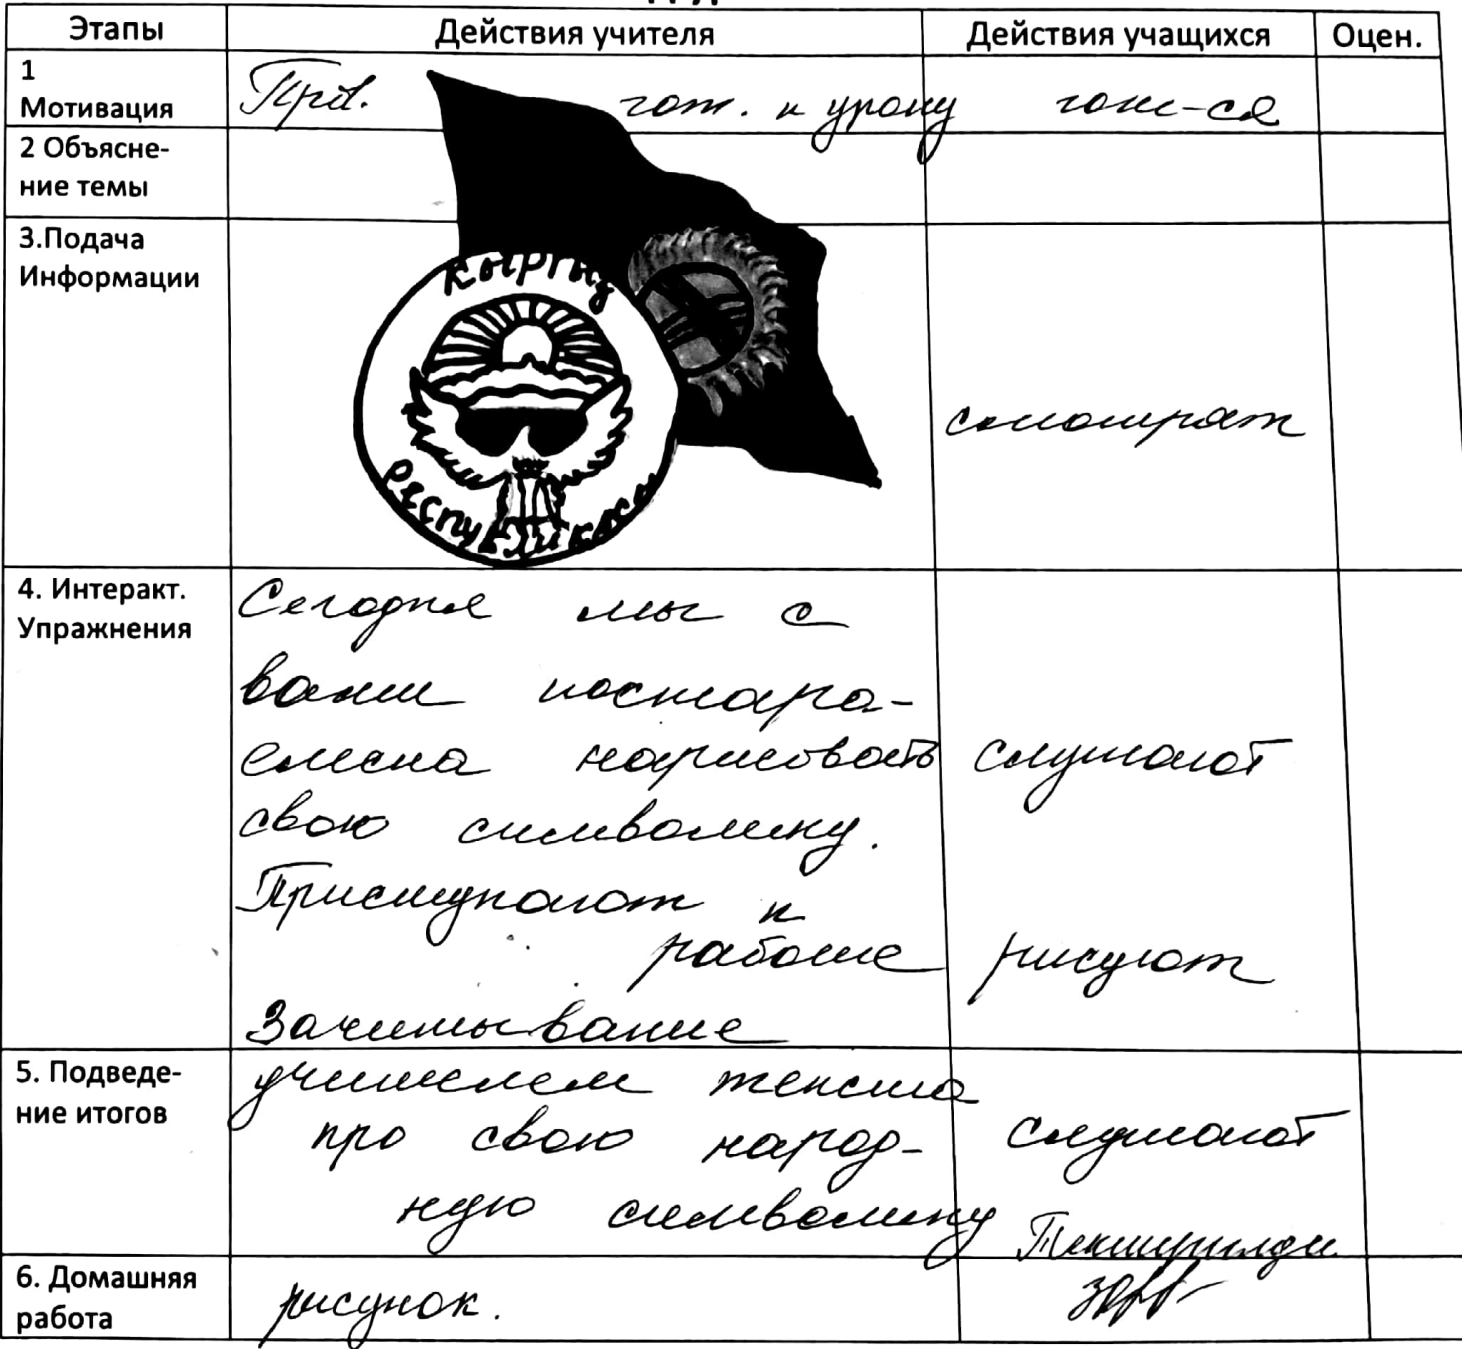 Этапы Действия учителя Действия учащихся Оцен.
1
Мотивация
Прив. гот. к уроку гот-ся
2 Объясне-
ние темы
3.Подача
Информации
Кыргыз
Республикасы
смотрят
4. Интеракт.
Упражнения
Сегодня мы с
вами постара-
емсна нарисовать слушают
свою символику.
Приступают к
работе рисуют
Зачитывание
5. Подведе-
ние итогов
учителем текста
про свою народ- слушают
ную символику
Текшерилди
6. Домашняя
работа
рисунок.